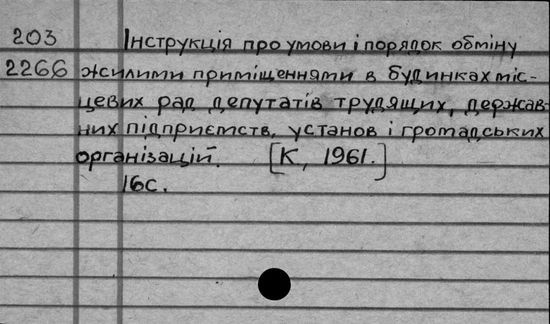 203 Інструкція про умови і порядок обміну
2266 жилими приміщеннями в будинках міс-
цевих рад депутатів трудящих, держав-
них підприємств, установ і громадських
організацій. [К, 1961.]
16с.